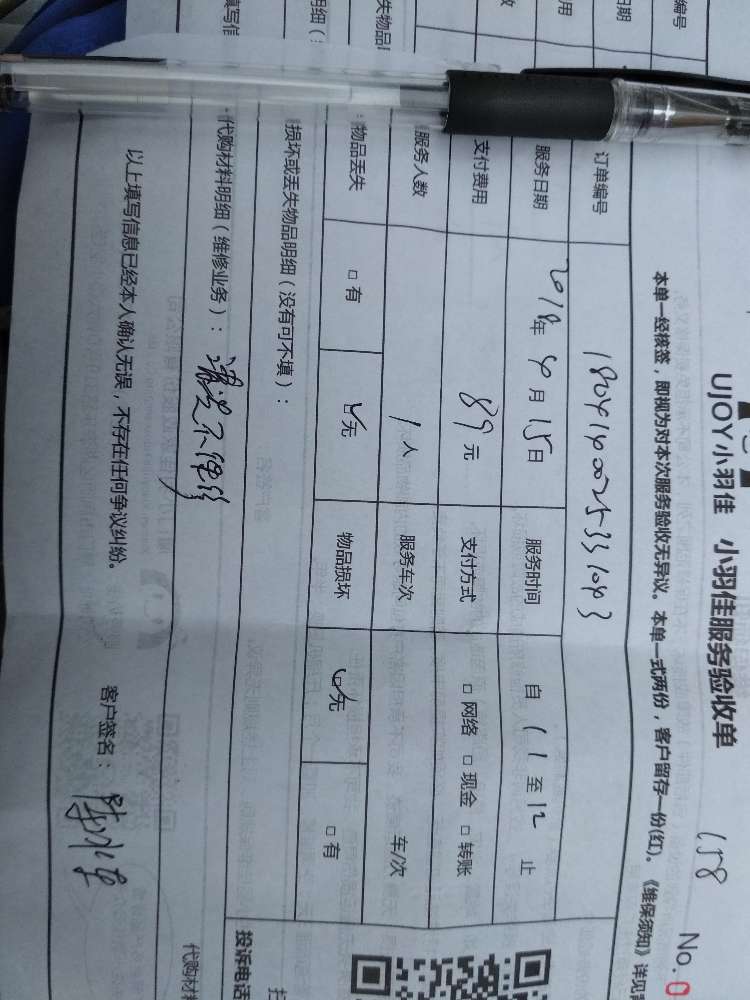 158
No.0
UJOY小羽佳 小羽佳服务验收单
本单一经核签，即视为对本次服务验收无异议。本单一式两份，客户留存一份(红)。《维保须知》详见背
订单编号 1804140025331043
服务日期 2018年4月15日 服务时间 自 11 至 12 止
支付费用 89元 支付方式 □网络 □现金 □转账
服务人数 1人 服务车次 车/次
物品丢失 □有 ☑无 物品损坏 ☑无 □有
损坏或丢失物品明细（没有可不填）：
代购材料明细（维修业务）： 清洗不维修
以上填写信息已经本人确认无误，不存在任何争议纠纷。 客户签名：
投诉电话
代购材料
编号
日期